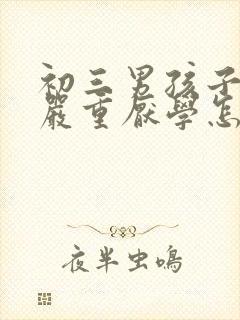 初三男孩子
嚴重厭學怎
夜半虫鳴